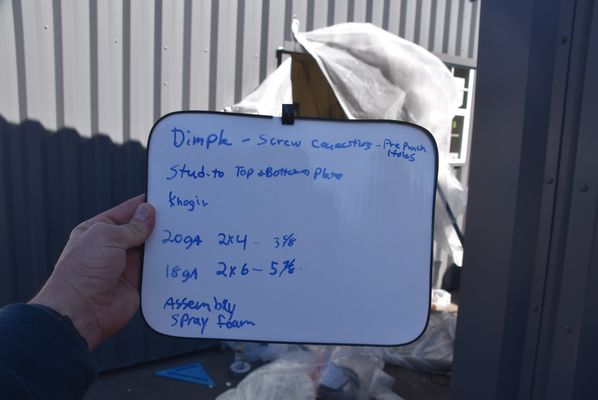 Dimple - Screw Connections - Pre Punch Holes
Stud to Top & Bottom Plate
20gA 2x4 - 3 5/8
18gA 2x6 -
Assembly
Spray Foam